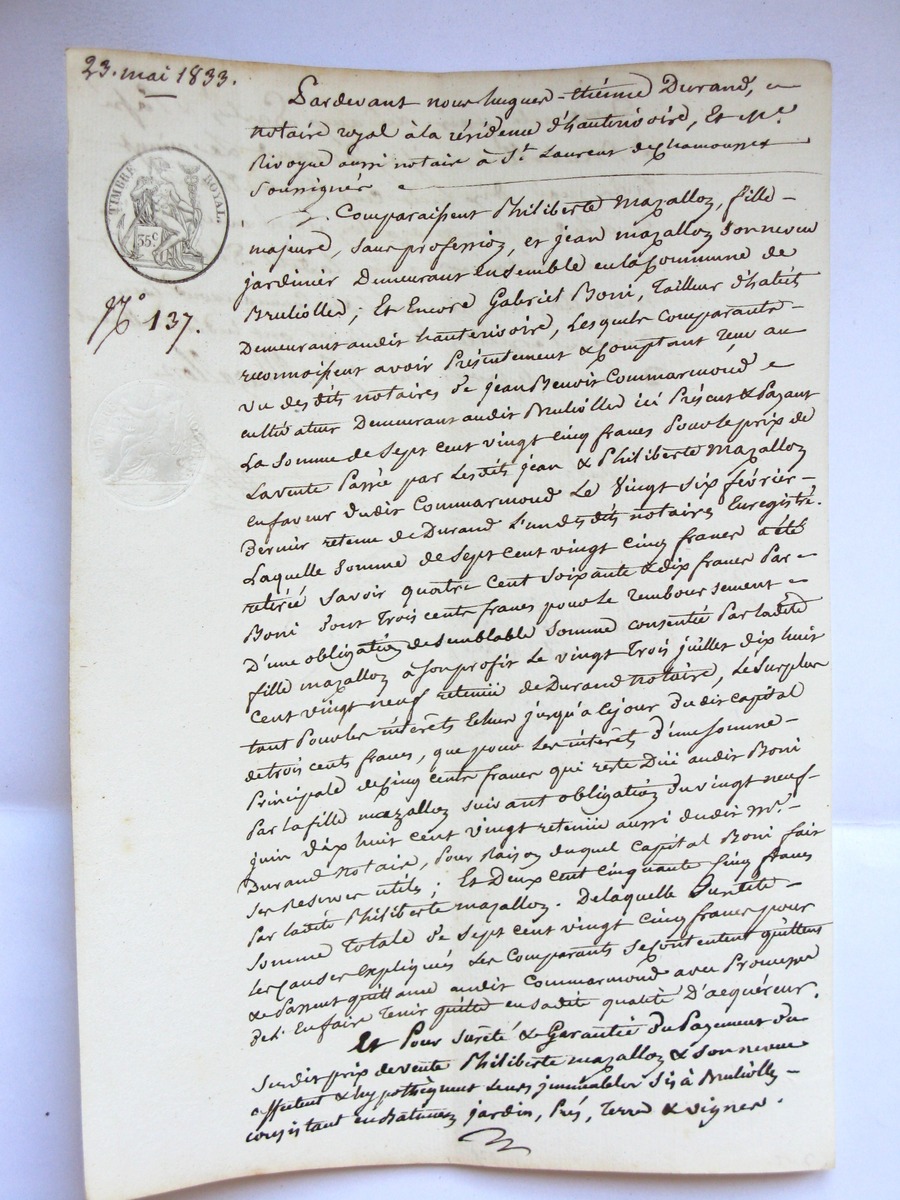 23. mai 1833.
TIMBRE ROYAL.
35c
N.° 137.
Pardevant nous hugues-thiénne Durand,
notaire royal à la résidence d'hauterivoire, Et Me.
Rivoyre aussi notaire à St. Laurent de chamousset
soussignés
Comparaissent Philiberte mazallon, fille
majeure, sans profession, et jean mazallon son neveu
jardinier Demeurant ensemble en la Commune de
Brulliolles; Et Encore Gabriel Boni, Tailleur d'habits
Demeurant audit hauterivoire, Lesquels comparants
reconnaissent avoir Présentement & Comptant reçu au
vu des dits notaires de jean Benoit Commarmond
cultivateur Demeurant audit Brulliolles ici Présent & Payant
La somme de Sept cent vingt cinq francs Pour le prix de
La vente Passée par Lesdits jean & Philiberte Mazallon
en faveur dudit Commarmond Le Vingt six février
Dernier retenue de Durand L'un des dits notaires Enregistré.
Laquelle somme de Sept cent vingt cinq francs a été
retirée savoir quatre cent soixante & dix francs Par
Boni Dont Trois cents francs pour le remboursement
D'une obligation de semblable somme consentie Par ladite
fille mazallon à son profit Le vingt Trois juillet dix huit
cent vingt neuf retenue de Durand Notaire, Le surplus
tant Pour les intérêts Echus jusqu'à ce jour dudit capital
de trois cents francs, que pour Les intérêts d'une somme
Principale de Cinq cents francs qui reste Duë audit Boni
Par la fille mazallon suivant obligation du vingt neuf
juin Dix huit cent vingt retenue aussi dudit Me.
Durand Notaire, Pour Raison duquel capital Boni fait
ses Reserves utiles; Et Deux cent cinquante cinq francs
Par ladite Philiberte mazallon. De laquelle susdite
somme Totale de Sept cent vingt cinq francs pour
les causes Expliquées Les Comparants se contentent quittent
& Passent quittance audit Commarmond avec Promesse
de L'En faire Tenir quitte en sadite qualité D'acquéreur.
Et Pour sûreté & Garantie du Payement du
susdit prix de vente Philiberte mazallon & son neveu
affectent & hypothèquent Leurs immeubles Sis à Brulliolles
consistant en Batiments jardin, Prés, Terres & vignes.